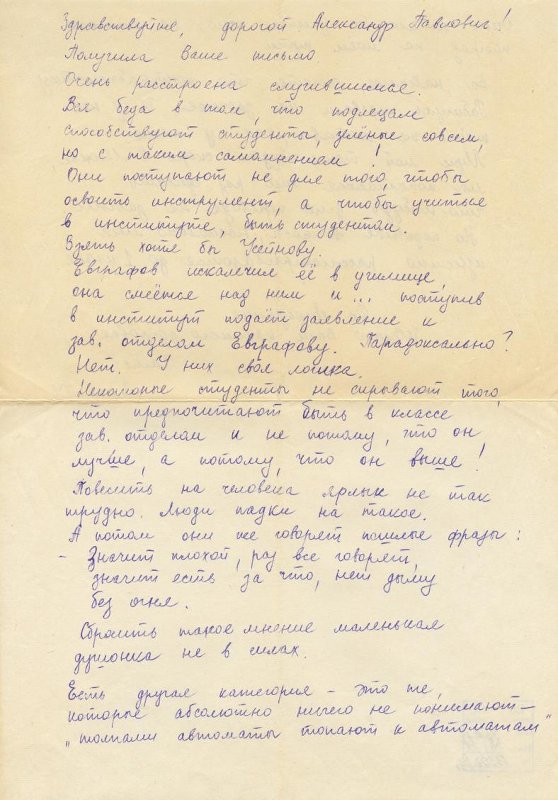 Здравствуйте, дорогой Александр Павлович!
Получила Ваше письмо
Очень расстроена случившимся.
Вся беда в том, что подлецам
способствуют студенты, зелёные совсем,
но с таким самомнением!
Они поступают не для того, чтобы
освоить инструмент, а чтобы учиться
в институте, быть студентом.
Взять хотя бы
Евграфов искалечил её в училище,
она смеётся над ним и... поступив
в институт подаёт заявление к
зав. отделом Евграфову. Парадоксально?
Нет. У них своя логика.
Некоторые студенты не скрывают того,
что предпочитают быть в классе
зав. отделом и не потому, что он
лучше, а потому, что он выше!
Повесить на человека ярлык не так
трудно. Люди падки на такое.
А потом они же говорят пошлые фразы:
- Значит плохой, раз все говорят,
значит есть за что, нет дыму
без огня.
Сбросить такое мнение маленькая
душонка не в силах.
Есть другая категория - это те,
которые абсолютно ничего не понимают -
"толпами автоматы топают к автоматам"